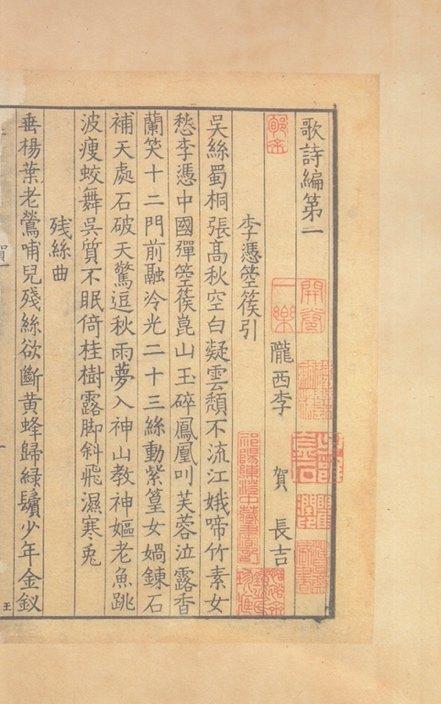 歌詩編第一
隴西李 賀 長吉
李憑箜篌引
吳絲蜀桐張高秋空白凝雲頹不流江娥啼竹素女
愁李憑中國彈箜篌崑山玉碎鳳凰叫芙蓉泣露香
蘭笑十二門前融冷光二十三絲動紫篁女媧鍊石
補天處石破天驚逗秋雨夢入神山教神嫗老魚跳
波瘦蛟舞吳質不眠倚桂樹露脚斜飛濕寒兎
殘絲曲
垂楊葉老鶯哺兒殘絲欲斷黄蜂歸緑鬢少年金釵